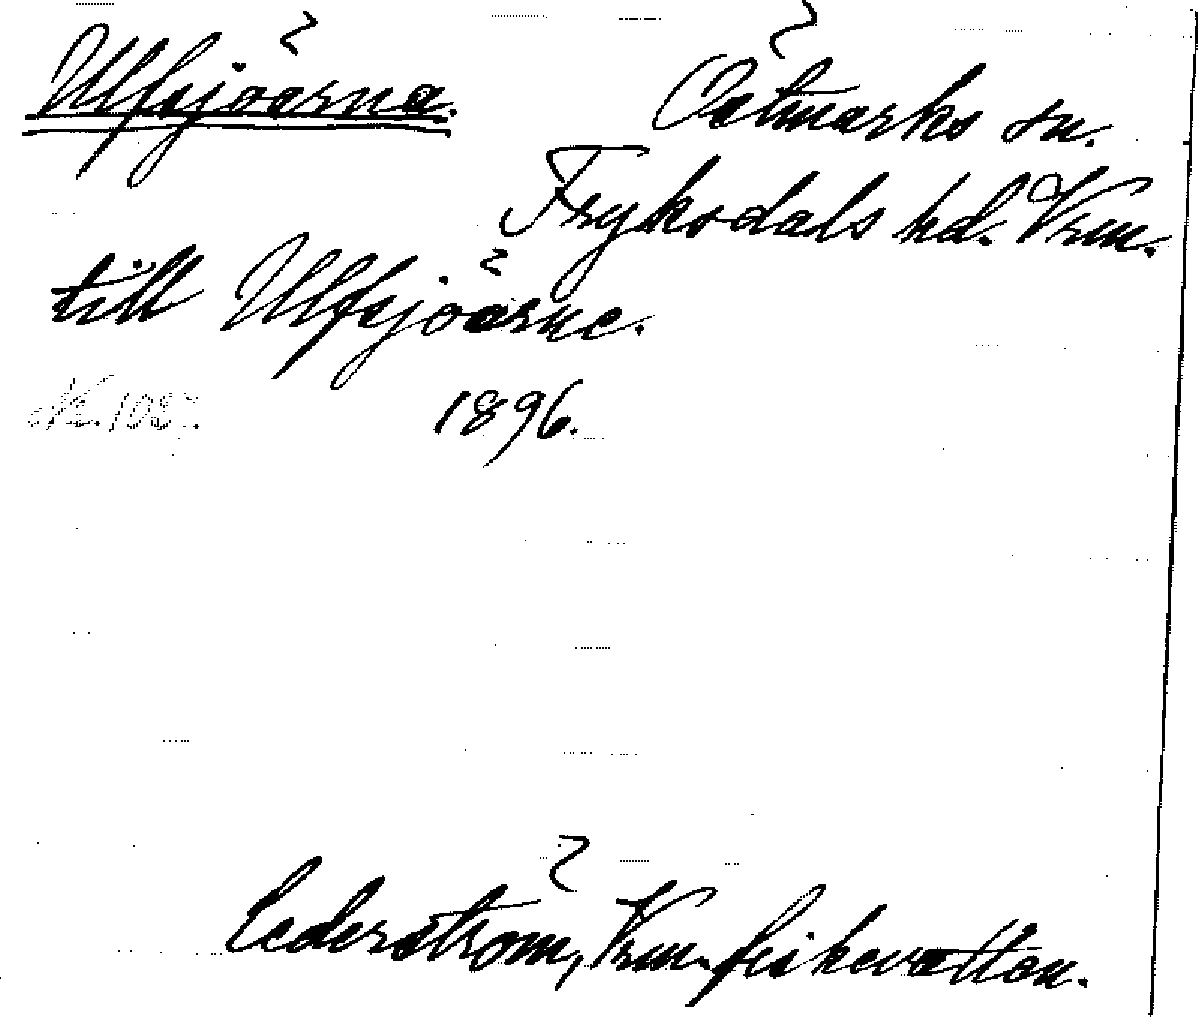 Ulfsjöarna.
Östmarks sn.
Fryksdals hd. Vrm.
till Ulfsjöarne.
1896.
Cederström, Vrm. fiskevatten.